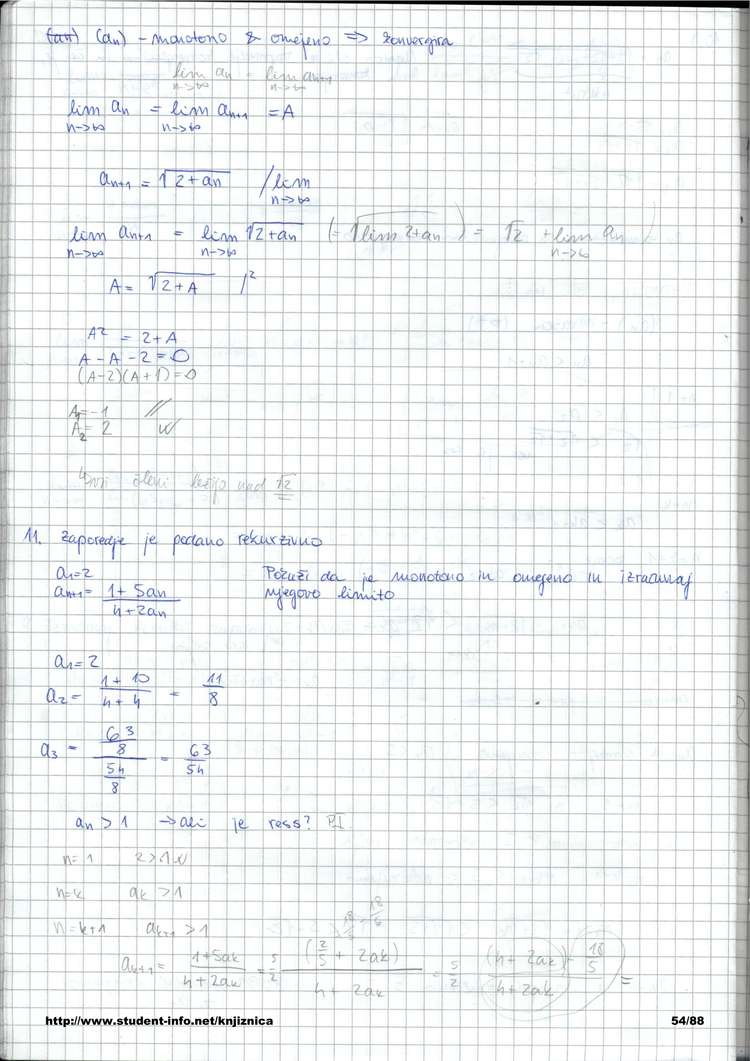 (an) (an) – monotono & omejeno => konvergira
lim an = lim an+1
n->∞ n->∞
lim an = lim an+1 = A
n->∞ n->∞
an+1 = √2+an / lim
n->∞
lim an+1 = lim √2+an (= √lim 2+an ) = √2 + lim an )
n->∞ n->∞ n->∞
A = √2+A /²
A² = 2+A
A - A - 2 = 0
(A-2)(A+1)=0
A1=-1 //
A2= 2
členi ležijo nad √2
11. Zaporedje je podano rekurzivno
a1=2 Pokaži da je monotono in omejeno in izračunaj
an+1= 1+5an / 4+2an njegovo limito
a1=2
a2= 1+10 / 4+4 = 11/8
a3 = 63/8 / 54/8 = 63/54
an > 1 -> ali je ress? PI
n=1 2>1
n=k ak >1
n=k+1 ak+1 >1
ak+1 = 1+5ak / 4+2ak = 5/2 (2/5 + 2ak) / 4+2ak = 5/2 (4+2ak) - 18/5 / 4+2ak =
http://www.student-info.net/knjiznica 54/88